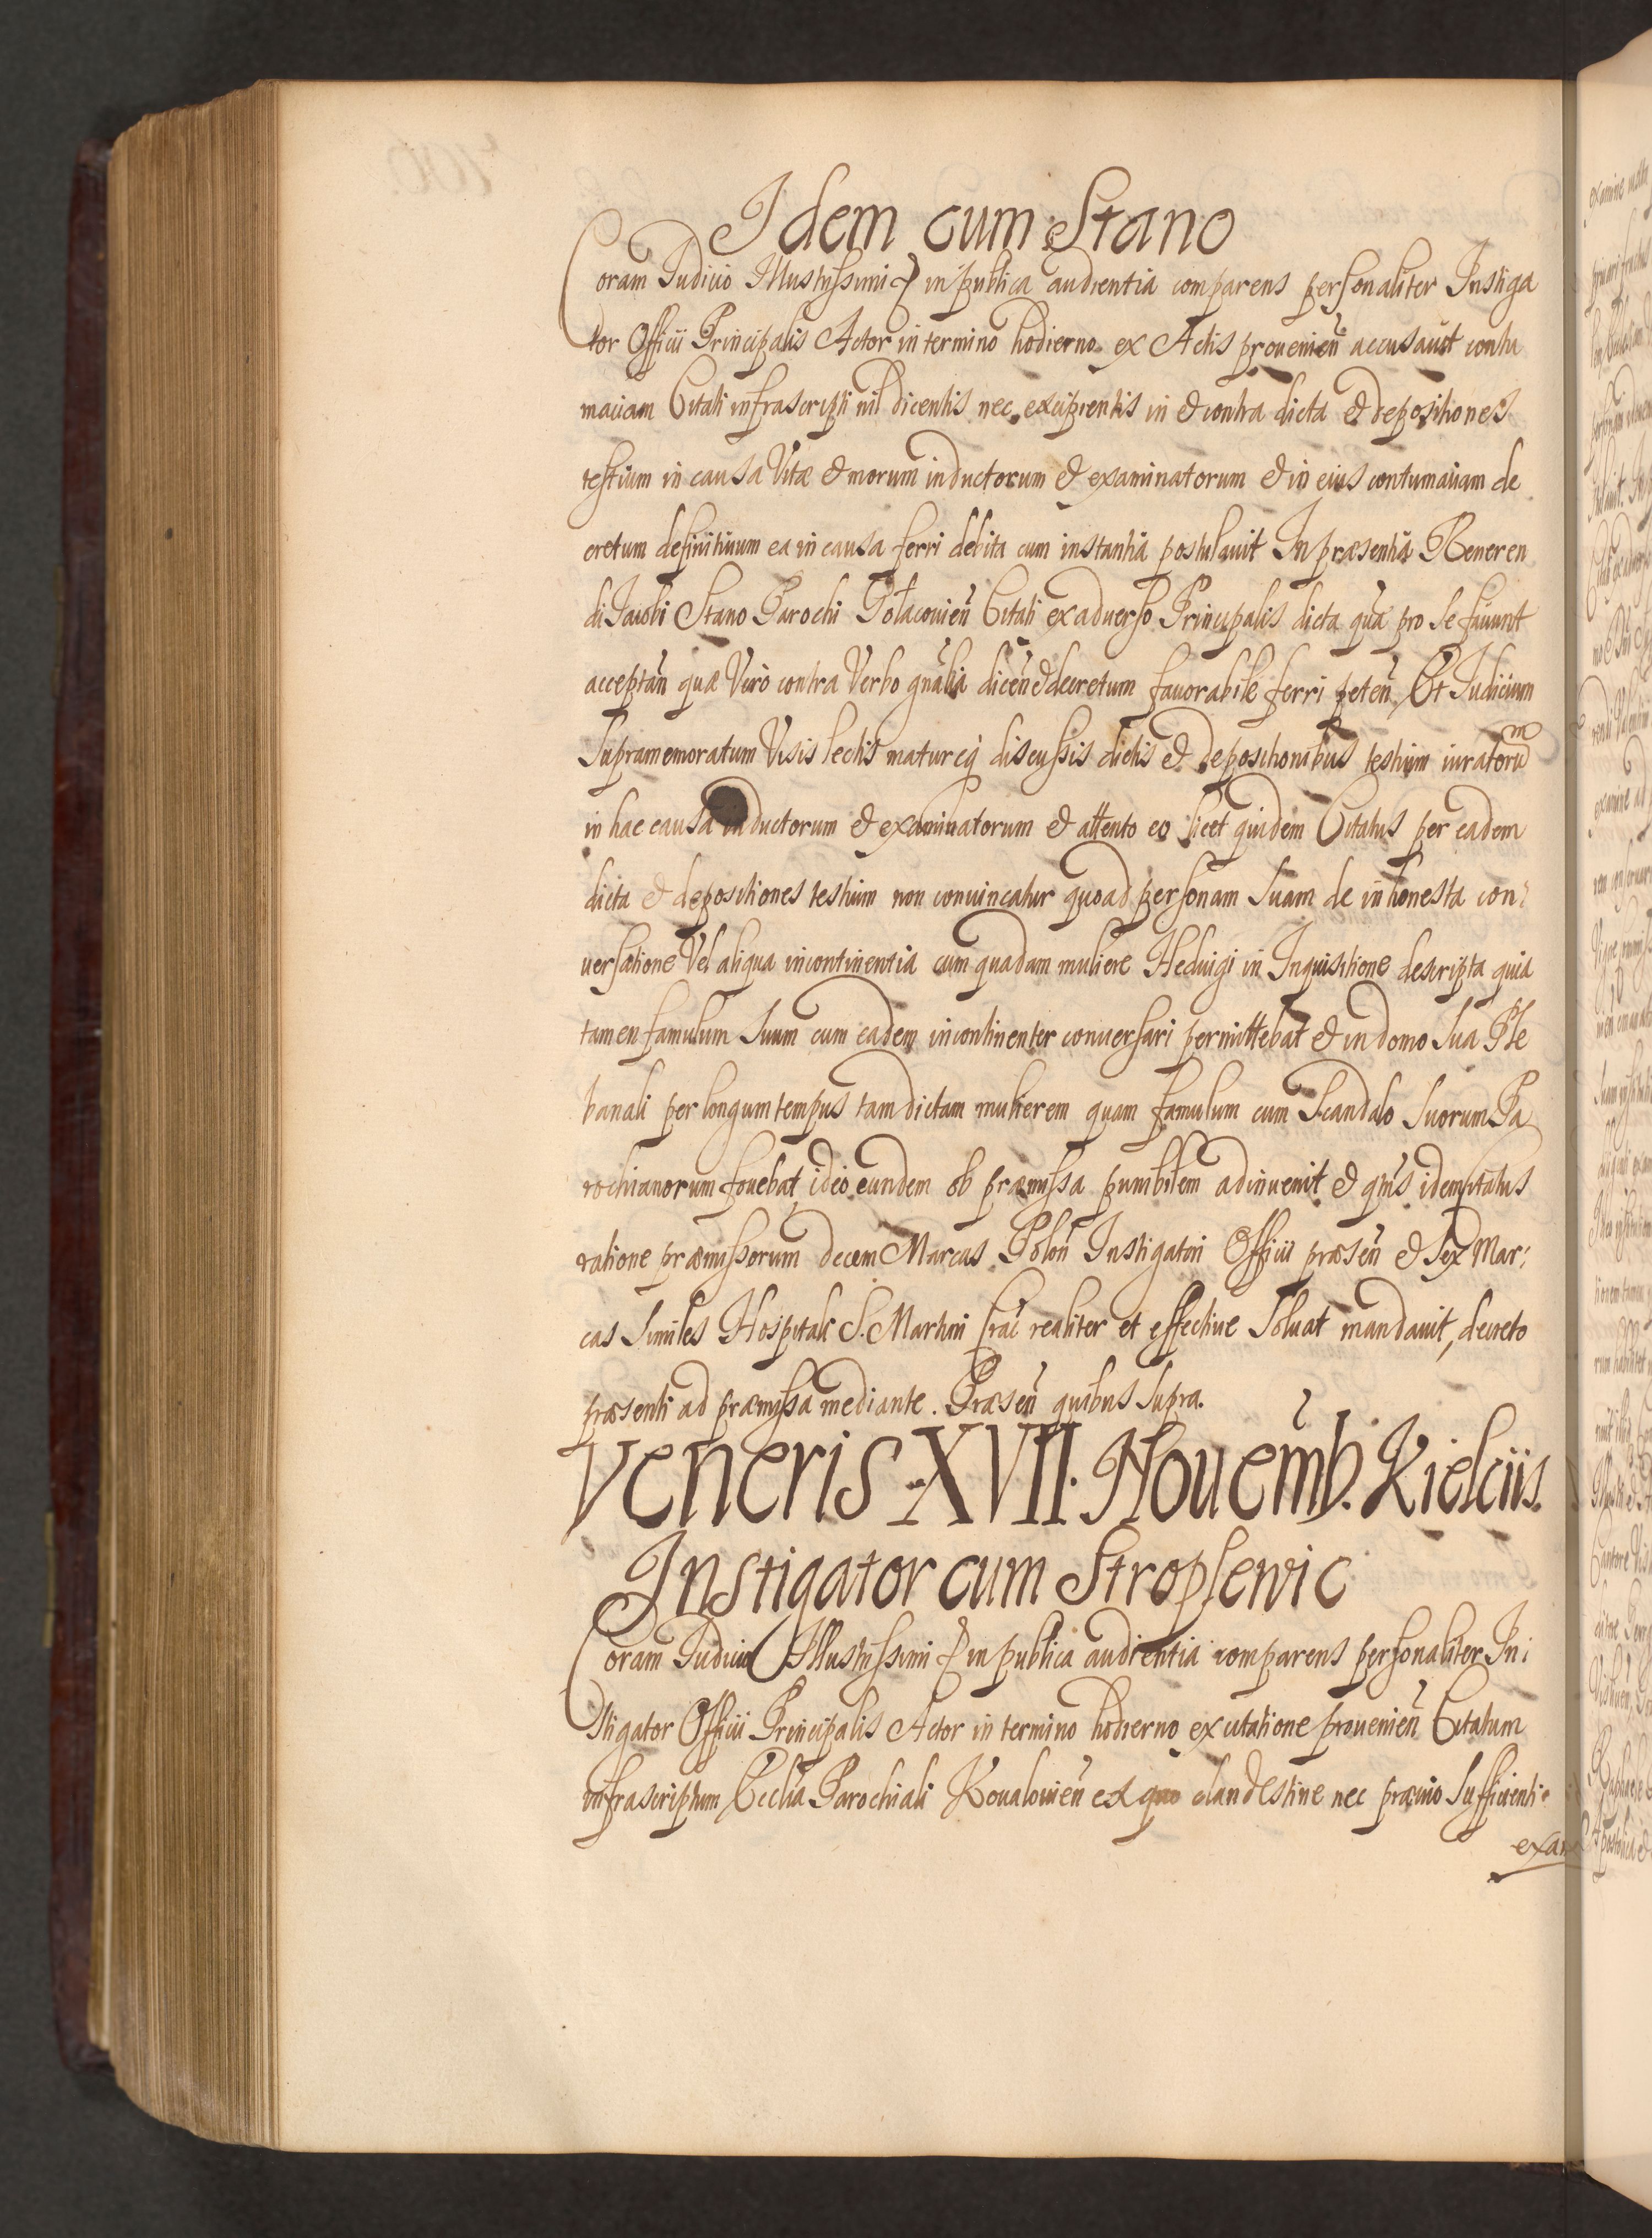 Idem cum Stano
Coram Iudicio Illustrissimi & in publica audientia comparens personaliter Instiga
tor Officii Principalis Actor in termino hodierno ex Actis prouenień accusauit contu
maciam Citati infrascripti nil dicentis nec excipientis in & contra dicta & depositiones
testium in causa Vitæ & morum inductorum & examinatorum & in eius contumaciam de
cretum definitiuum ea in causa ferri debita cum instantia postulauit In præsentia Reueren
di Iacobi Stano Parochi Potacouień Citati ex aduerso Principalis dicta quæ pro se faciunt
acceptań quæ Verò contra Verbo gńalia diceń & decretum fauorabile ferri peteń, Et Iudicium
Supramemoratum Visis lectis matureq3 discussis dictis & depositionibus testium iuratorum
in hac causa inductorum & examinatorum & attento eo licet quidem Citatus per eadem
dicta & depositiones testium non conuincatur quoad personam Suam de inhonesta con
uersatione Vel aliqua incontinentia cum quadam muliere Heduigi in Inquisitione descripta quia
tamen famulum Suum cum eadem incontinenter conuersari permittebat & in domo Sua Ple
banali per longum tempus tam dictam mulierem quam famulum cum Scandalo Suorum Pa
rochianorum fouebat, ideo eundem ob præmissa punibilem adinuenit & idem Citatus
ratione præmissorum decem Marcas Poloń Instigatori Officii præseń & Sex Mar:
cas Similes Hospitali S. Martini Crac realiter et effectiue Soluat mandauit, decreto
præsenti ad præmissa mediante. Præseń quibus Supra.
Veneris XVII. Nouemb. Kielciis.
Instigator cum Stroplewic
Coram Iudicio Illustrissimi & in publica audientia comparens personaliter In:
stigator Officii Principalis Actor in termino hodierno ex citatione prouenień Citatum
infrascriptum Eccliæ Parochiali Koualouień ex quo clandestine nec præuio Sufficienti
exam